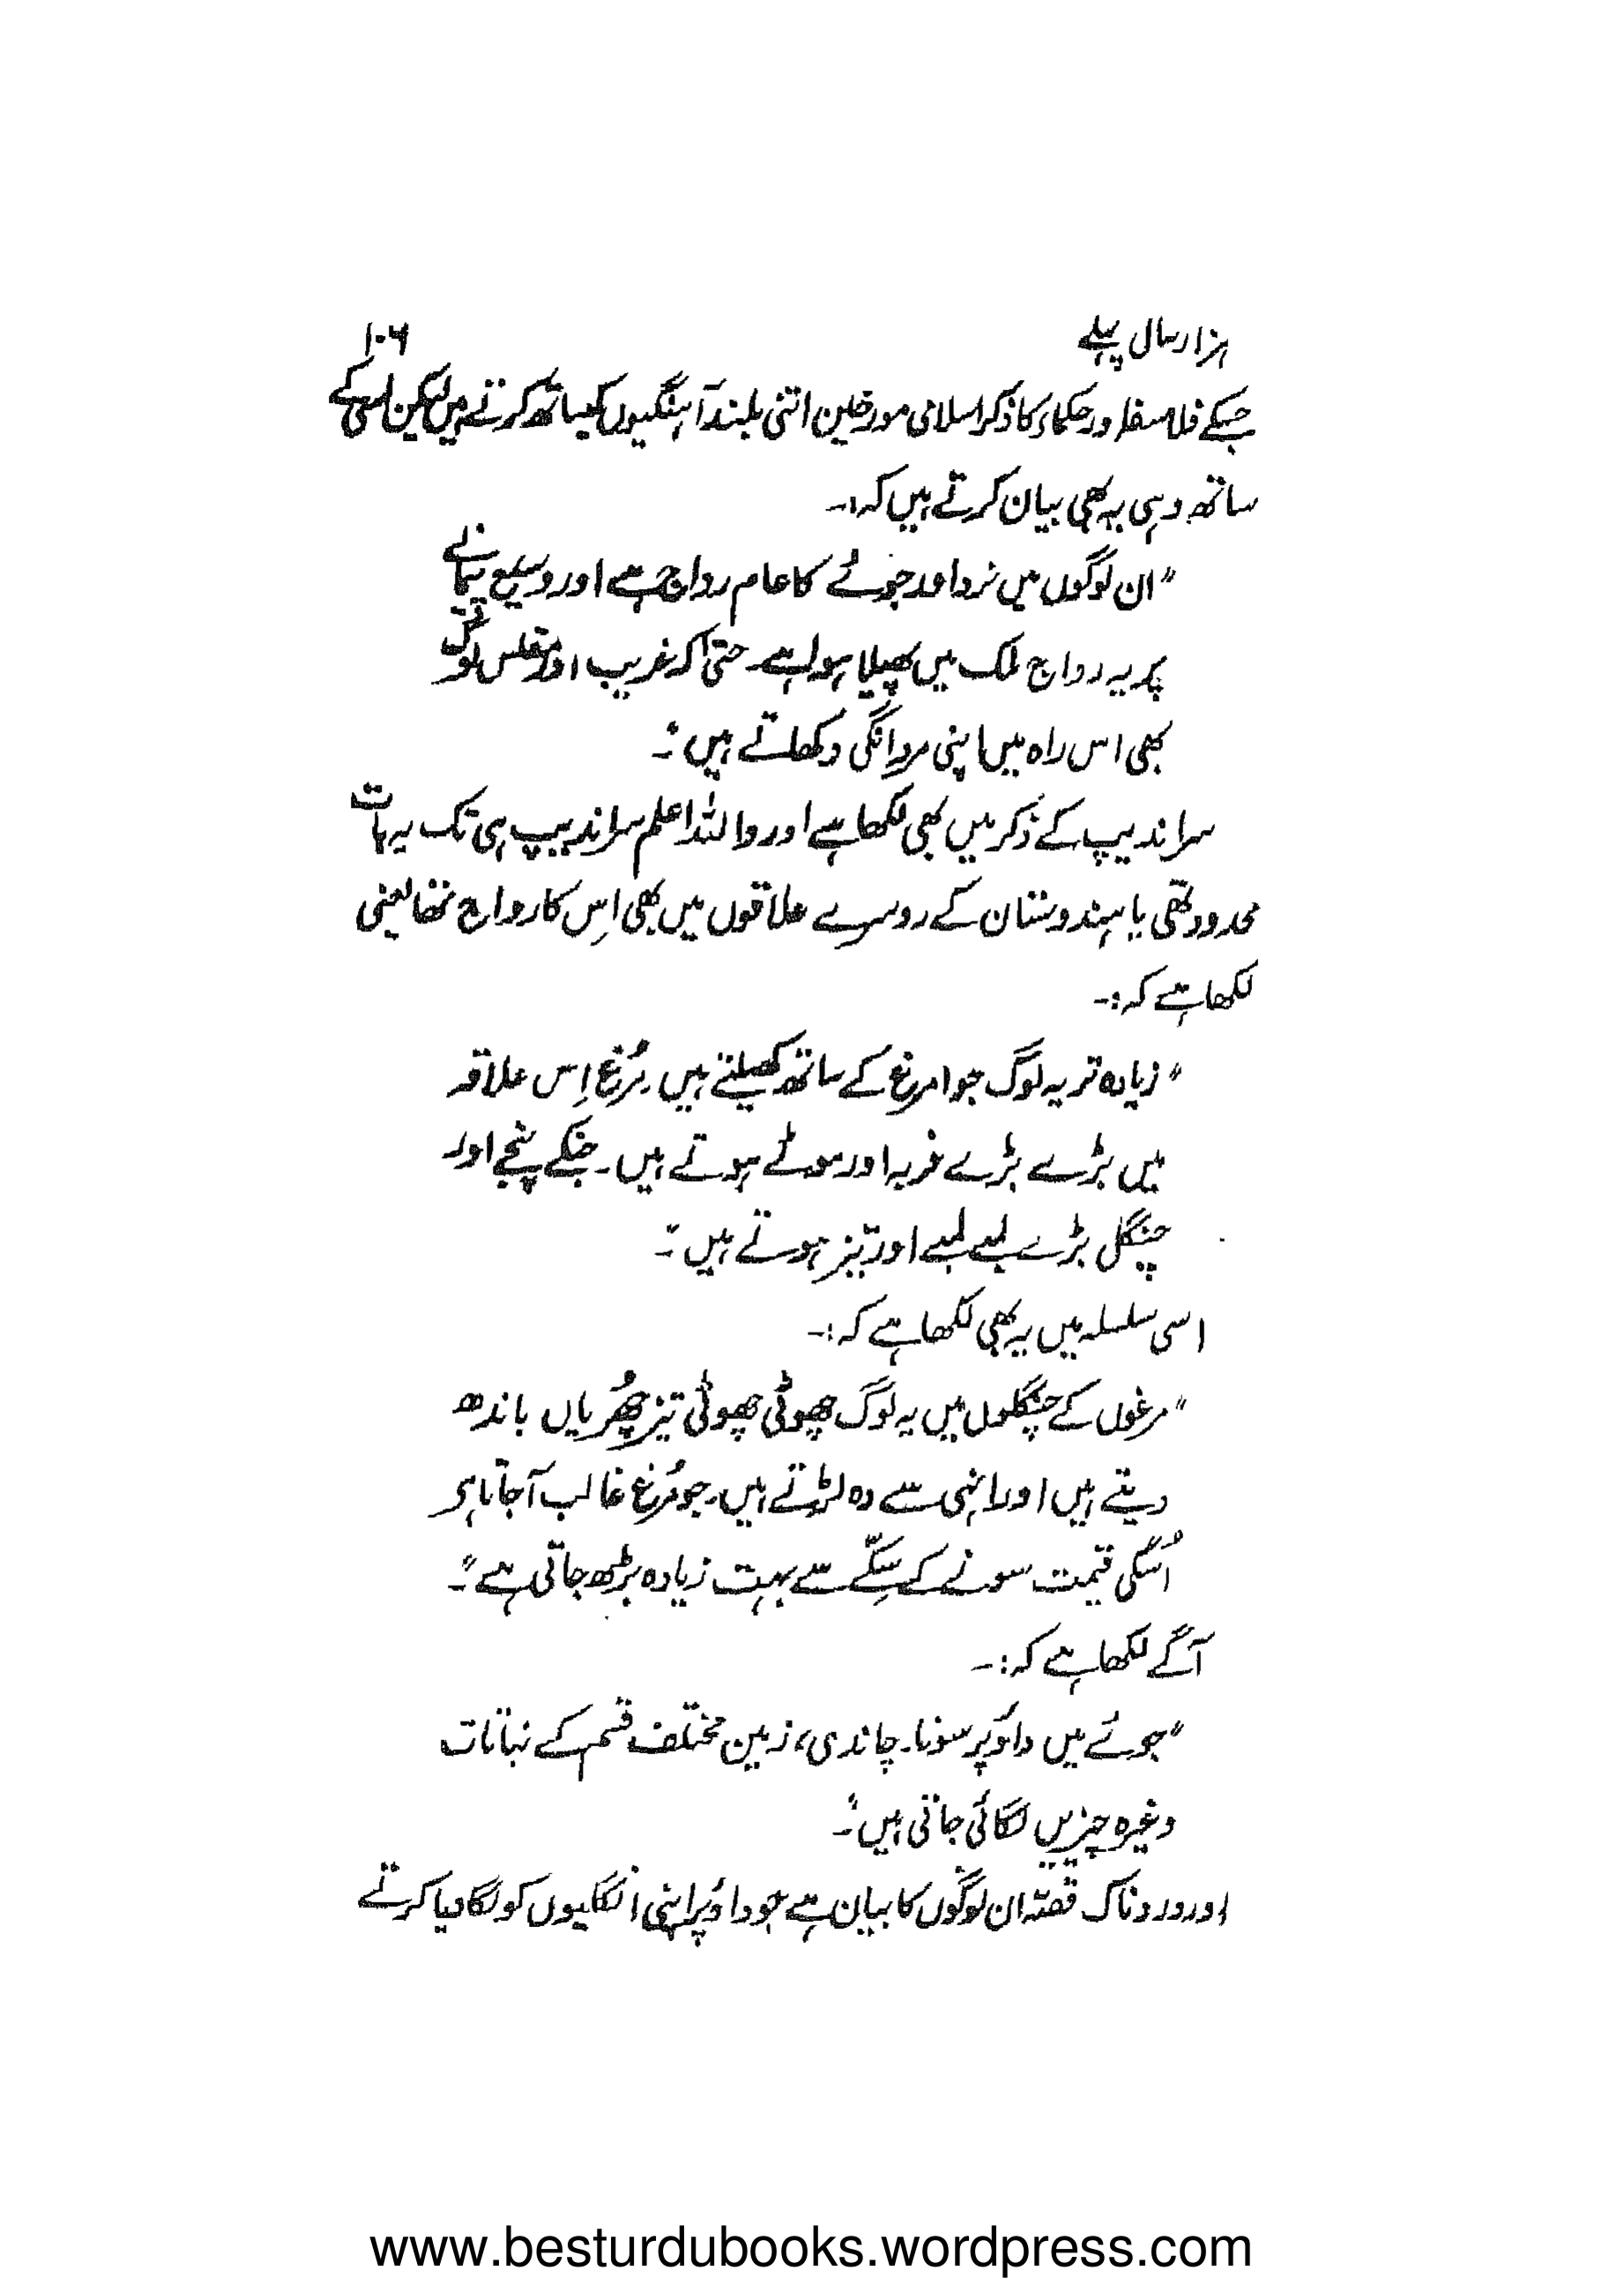 ہزار سال پہلے ۱۰۶
جسکے فلاسفہ اور حکماء کا ذکر اسلامی مورخین اتنی بلند آہنگیوں کیساتھ کرتے ہیں لیکن اسی کے
ساتھ وہی یہ بھی بیان کرتے ہیں کہ:۔
"ان لوگوں میں نرد اور جوئے کا عام رواج ہے اور وسیع پیمانے
پر یہ رواج ملک میں پھیلا ہوا ہے۔ حتیٰ کہ غریب اور مفلس لوگ تک
بھی اس راہ میں اپنی مردانگی دکھاتے ہیں"۔
سراندیپ کے ذکر میں بھی لکھا ہے اور واللہ اعلم سراندیپ ہی تک یہ بات
محدود تھی یا ہندوستان کے دوسرے علاقوں میں بھی اِس کا رواج تھا یعنی
لکھا ہے کہ:۔
"زیادہ تر یہ لوگ جوا مرغ کے ساتھ کھیلتے ہیں۔ مُرغ اِس علاقہ
میں بڑے بڑے فربہ اور موٹے ہوتے ہیں۔ جنکے پنجے اور
چنگل بڑے لمبے لمبے اور تیز ہوتے ہیں"۔
اسی سلسلہ میں یہ بھی لکھا ہے کہ:۔
"مرغوں کے چنگلوں میں یہ لوگ چھوٹی چھوٹی تیز چھُریاں باندھ
دیتے ہیں اور انہی سے وہ لڑتے ہیں۔ جو مُرغ غالب آجاتا ہو
اُسکی قیمت سونے کے سِکّے سے بہت زیادہ بڑھ جاتی ہے"۔
آگے لکھا ہے کہ:۔
"جوئے میں داؤ پر سونا۔ چاندی، زمین مختلف قسم کے نباتات
وغیرہ چیزیں لگائی جاتی ہیں"۔
اور دردناک قصّہ ان لوگوں کا بیان ہے جو داؤ پر اپنی انگلیوں کو لگا دیا کرتے
www.besturdubooks.wordpress.com